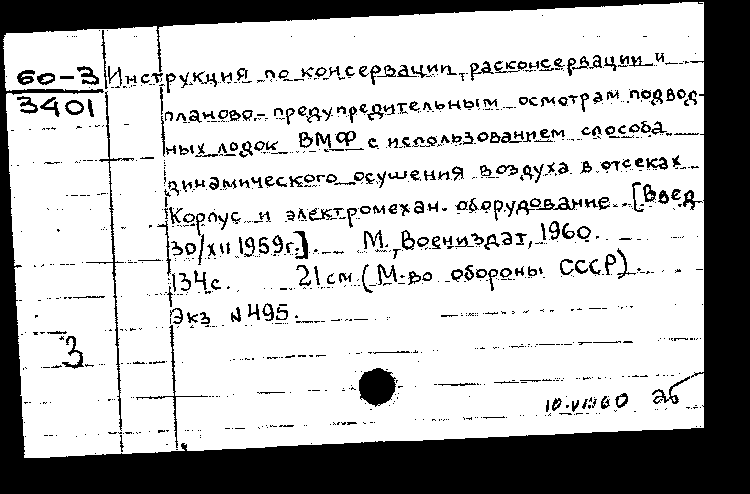 60-3
3401
Инструкция по консервации, расконсервации и
планово-предупредительным осмотрам подвод-
ных лодок ВМФ с использованием способа
динамического осушения воздуха в отсеках
Корпус и электромехан. оборудование. [Введ
30/XII 1959г.]. М., Воениздат, 1960.
134с. 21см (М-во обороны СССР).
Экз N495.
3